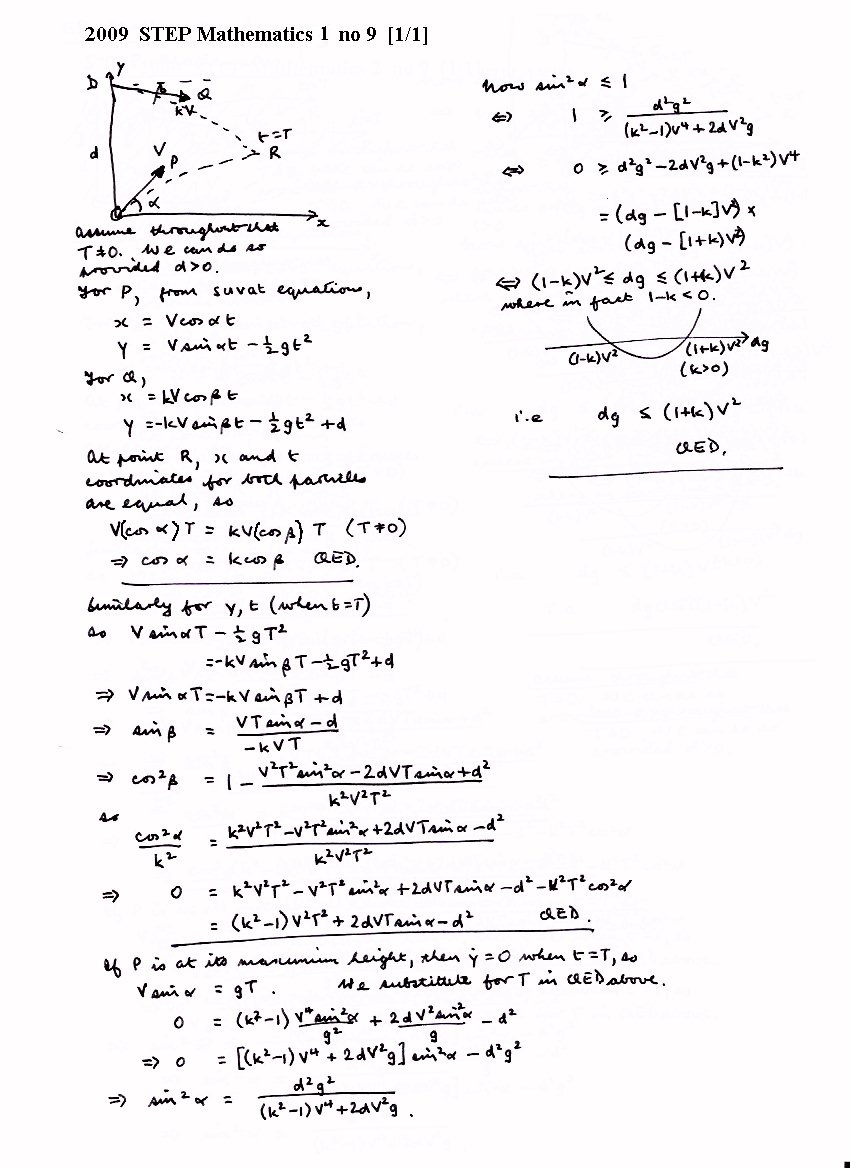 2009 STEP Mathematics 1 no 9 [1/1]
y
D
Q
kV
t=T
R
d
V
P
α
x
Assume throughout that
T≠0. We can do so
provided d>0.
For P, from suvat equations,
x = Vcosαt
y = Vsinαt - ½gt²
For Q,
x = kVcosβt
y = -kVsinβt - ½gt² + d
At point R, x and t
coordinates for both particles
are equal, so
V(cosα)T = kV(cosβ)T (T≠0)
⇒ cosα = kcosβ QED.
Similarly for y, t (when t=T)
so VsinαT - ½gT²
= -kVsinβT - ½gT² + d
⇒ VsinαT = -kVsinβT + d
⇒ sinβ = (VTsinα - d)/(-kVT)
⇒ cos²β = 1 - (V²T²sin²α - 2dVTsinα + d²)/(k²V²T²)
so
cos²α/k² = (k²V²T² - V²T²sin²α + 2dVTsinα - d²)/(k²V²T²)
⇒ 0 = k²V²T² - V²T²sin²α + 2dVTsinα - d² - V²T²cos²α
= (k²-1)V²T² + 2dVTsinα - d² QED.
If P is at its maximum height, then ẏ=0 when t=T, so
Vsinα = gT. We substitute for T in QED above.
0 = (k²-1) V⁴sin²α/g² + 2dV²sin²α/g - d²
⇒ 0 = [(k²-1)V⁴ + 2dV²g]sin²α - d²g²
⇒ sin²α = d²g²/((k²-1)V⁴ + 2dV²g).
Now sin²α ≤ 1
⇔ 1 ≥ d²g²/((k²-1)V⁴ + 2dV²g)
⇔ 0 ≥ d²g² - 2dV²g + (1-k²)V⁴
= (dg - [1-k]V²) ×
(dg - [1+k]V²)
⇔ (1-k)V² ≤ dg ≤ (1+k)V²
where in fact 1-k < 0.
(1-k)V² (1+k)V² dg
(k>0)
i.e dg ≤ (1+k)V²
QED.